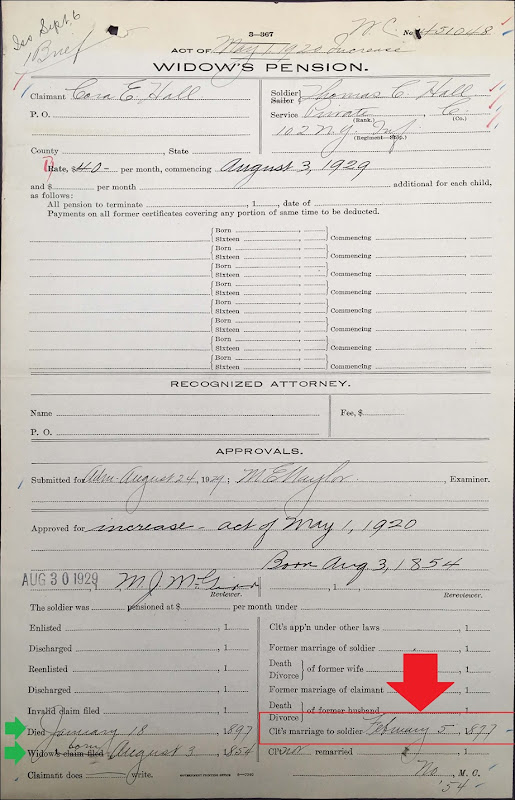 Iss Sept. 6
1 Brief
3—367
W. C. No. 451048
ACT OF May 1, 1920, Increase
WIDOW'S PENSION.
Claimant Cora E. Hall
P. O.
County , State
Soldier Thomas C. Hall
Sailor
Service Private C.
(Rank.) (Co.)
102 N.Y. Inf.
(Regiment—Ship.)
Rate, $40— per month, commencing August 3, 1929
and $ per month additional for each child,
as follows:
All pension to terminate , 1 , date of
Payments on all former certificates covering any portion of same time to be deducted.
Born
Sixteen Commencing
Born
Sixteen Commencing
Born
Sixteen Commencing
Born
Sixteen Commencing
Born
Sixteen Commencing
Born
Sixteen Commencing
Born
Sixteen Commencing
Born
Sixteen Commencing
RECOGNIZED ATTORNEY.
Name
P. O.
Fee, $
APPROVALS.
Submitted for Adm. August 24, 1929; M E Naylor, Examiner.
Approved for increase – act of May 1, 1920
Born Aug 3, 1854
AUG 30 1929 M. J.
Reviewer. , 1 , Rereviewer.
The soldier was pensioned at $ per month under
Enlisted , 1
Discharged , 1
Reenlisted , 1
Discharged , 1
Invalid claim filed , 1
Died January 18 1897
Widow's claim filed born August 3 1854
Claimant does write.
GOVERNMENT PRINTING OFFICE
Clt's app'n under other laws , 1
Former marriage of soldier , 1
Death
Divorce of former wife , 1
Former marriage of claimant , 1
Death
Divorce of former husband , 1
Clt's marriage to soldier February 5 1877 –
Clt not remarried , 1
No , M. C.
'54 –